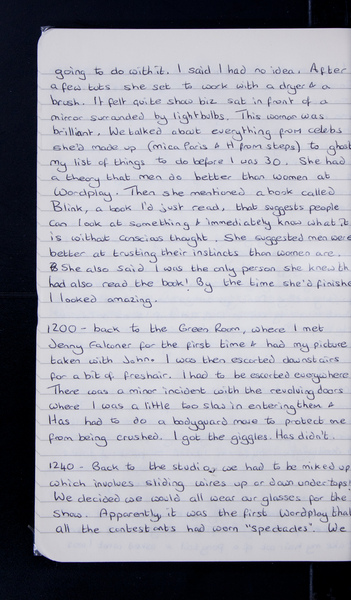 going to do with it. I said I had no idea. After
a few tuts she set to work with a dryer & a
brush. It felt quite show biz sat in front of a
mirror surrounded by lightbulbs. This woman was
brilliant. We talked about everything from celebs
she'd made up (mica Paris & H from steps) to
my list of things to do before I was 30. She had
a theory that men do better than women at
Wordplay. Then she mentioned a book called
Blink, a book I'd just read, that suggests people
can look at something & immediately know what it
is without conscious thought. She suggested men were
better at trusting their instincts than women are.
She also said I was the only person she knew th
had also read the book! By the time she'd finishe
I looked amazing.
1200 - back to the Green Room, where I met
Jenny Falconer for the first time & had my picture
taken with John. I was then escorted downstairs
for a bit of freshair. I had to be escorted everywhere
There was a minor incident with the revolving doors
where I was a little too slow in entering them &
Has had to do a bodyguard move to protect me
from being crushed. I got the giggles. Has didn't.
1240 - Back to the studio, we had to be miked up
which involves sliding wires up or down under tops!
We decided we would all wear our glasses for the
show. Apparently, it was the first Wordplay that
all the contestants had worn "spectacles". We